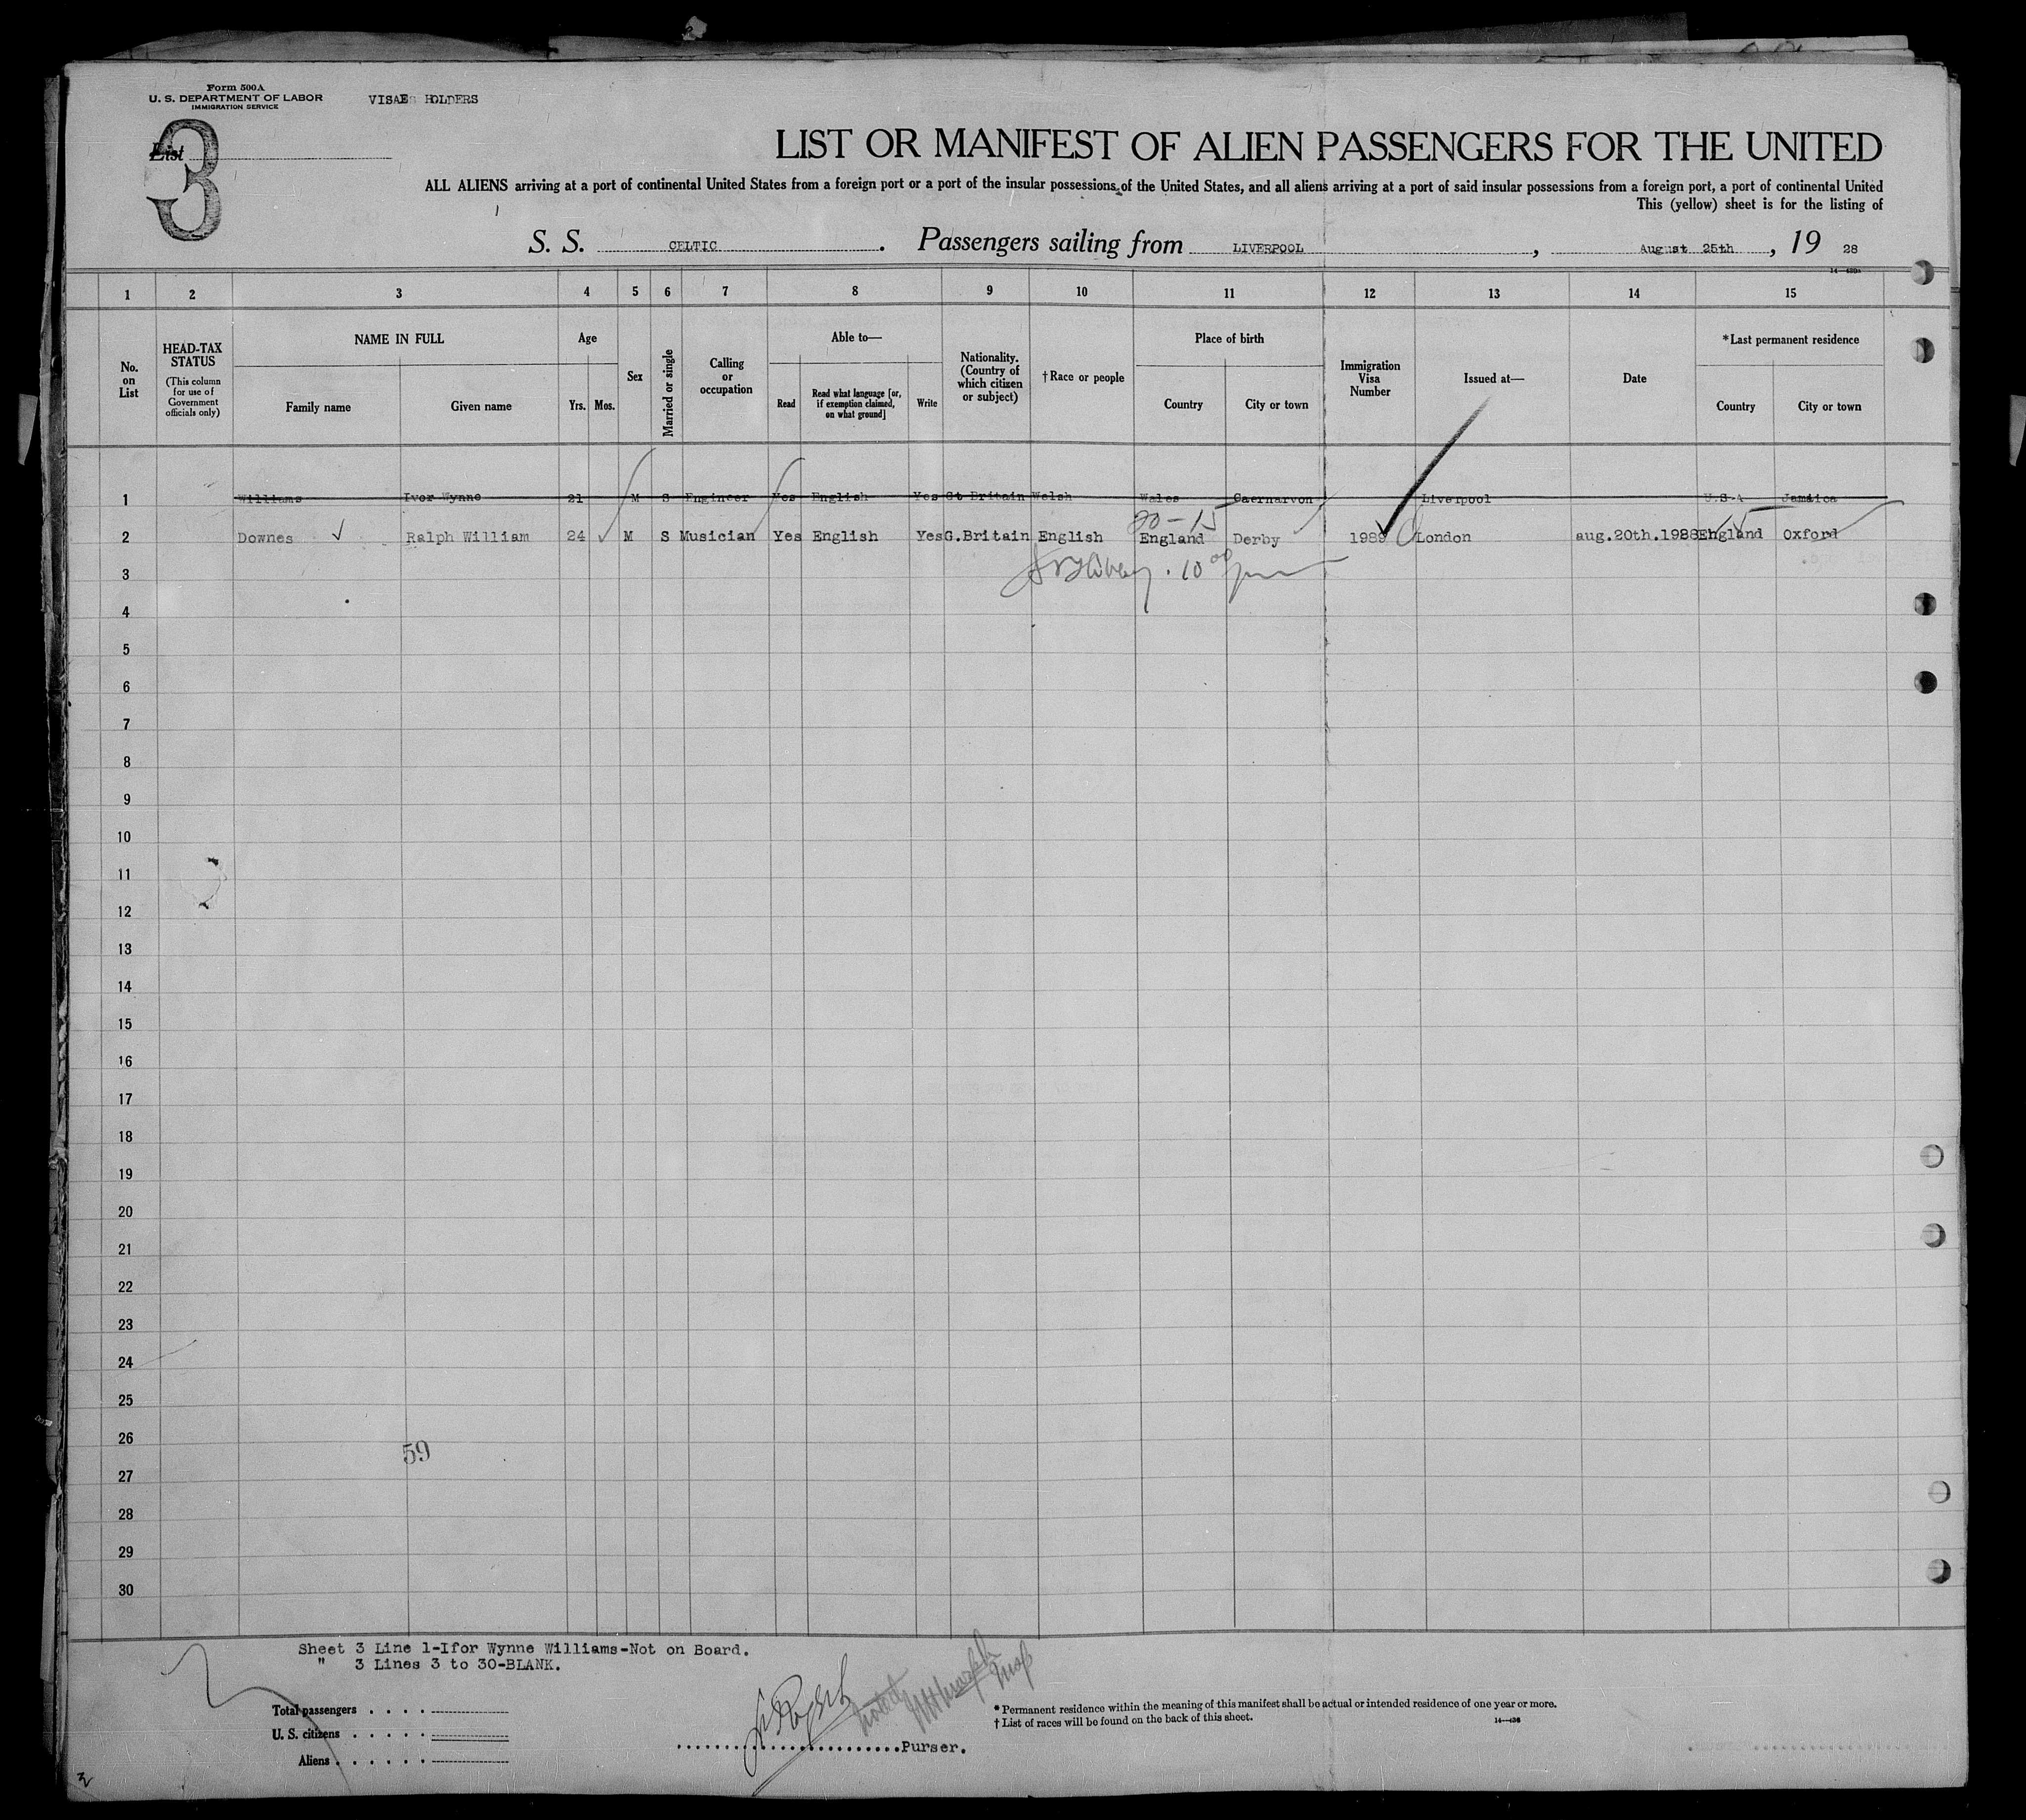 Form 500A
U. S. DEPARTMENT OF LABOR
IMMIGRATION SERVICE
VISAE HOLDERS
List
3
LIST OR MANIFEST OF ALIEN PASSENGERS FOR THE UNITED
ALL ALIENS arriving at a port of continental United States from a foreign port or a port of the insular possessions of the United States, and all aliens arriving at a port of said insular possessions from a foreign port, a port of continental United
This (yellow) sheet is for the listing of
S. S. CELTIC. Passengers sailing from LIVERPOOL, August 25th, 19 28
1 2 3 4 5 6 7 8 9 10 11 12 13 14 15
No. on List
HEAD-TAX STATUS (This column for use of Government officials only)
NAME IN FULL Family name Given name
Age Yrs. Mos.
Sex
Married or single
Calling or occupation
Able to— Read Read what language [or, if exemption claimed, on what ground] Write
Nationality. (Country of which citizen or subject)
† Race or people
Place of birth Country City or town
Immigration Visa Number
Issued at—
Date
*Last permanent residence Country City or town
1 Williams Ivor Wynne 21 M S Engineer Yes English Yes Gt Britain Welsh Wales Caernarvon Liverpool U.S.A Jamaica
20-15
2 Downes Ralph William 24 M S Musician Yes English Yes G.Britain English England Derby 1989 London aug.20th.1928 England Oxford
3
4
5
6
7
8
9
10
11
12
13
14
15
16
17
18
19
20
21
22
23
24
25
26
59
27
28
29
30
Sheet 3 Line 1-Ifor Wynne Williams-Not on Board.
" 3 Lines 3 to 30-BLANK.
Total passengers
U. S. citizens
Aliens
Purser.
* Permanent residence within the meaning of this manifest shall be actual or intended residence of one year or more.
† List of races will be found on the back of this sheet.
14—436